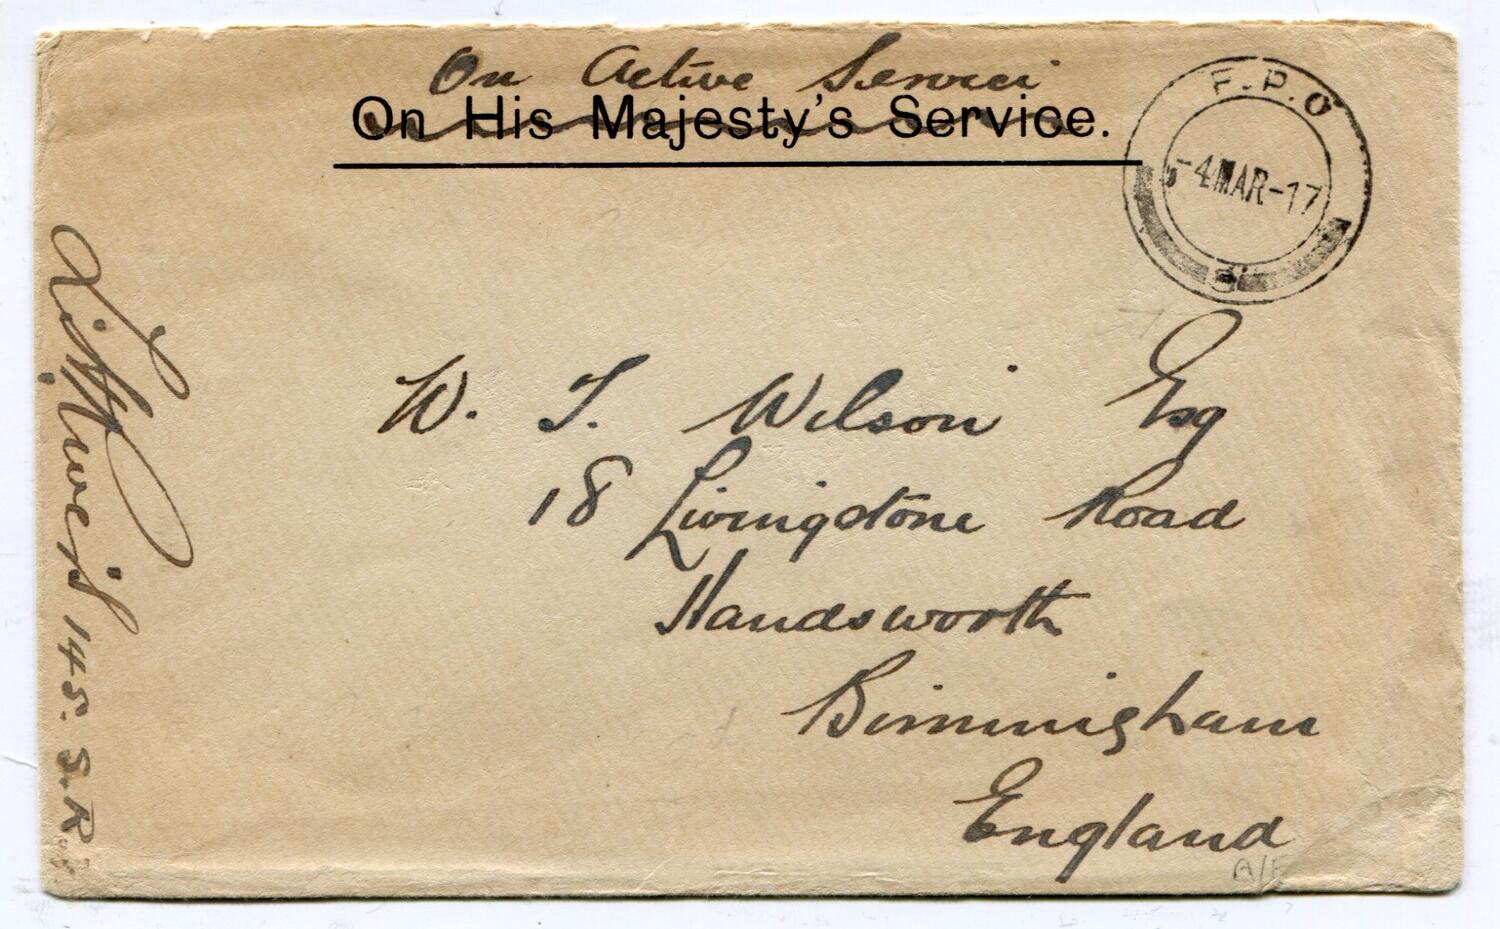 On Active Service
On His Majesty's Service.
F.P.O
-4 MAR-17
W. T. Wilson Esq
18 Livingstone Road
Handsworth
Birmingham
England
145. S.R.
A/F